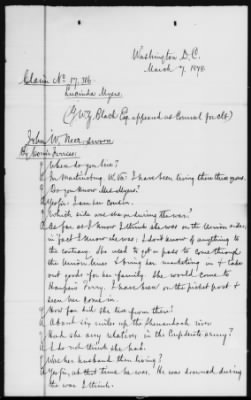 Washington D.C.
March 7, 1878.
Claim No. 17,716
Lucinda Myers.
(G.W.Z. Black Esq. appeared as Counsel for clt)
John W. Moor, sworn
By Com'r Ferriss:
Q Where do you live?
A In Martinsburg, W.Va. I have been living there three years.
Q Do you know Mrs Myers?
A Yes sir; I am her cousin.
Q Which side was she on during the war?
A As far as I know I think she was on the Union side;
in fact I know she was; I don't know of anything to
the contrary. She used to get a pass to come through
the Union lines & bring her marketing in & take
out goods for her family. She would come to
Harpers Ferry. I have been on the picket post &
seen her come in.
Q How far did she live from there?
A About six miles up the Shenandoah river.
Q Had she any relatives in the Confederate army?
A I do not think she had.
Q Was her husband then living?
A Yes sir, at that time he was. He was drowned during
the war I think.